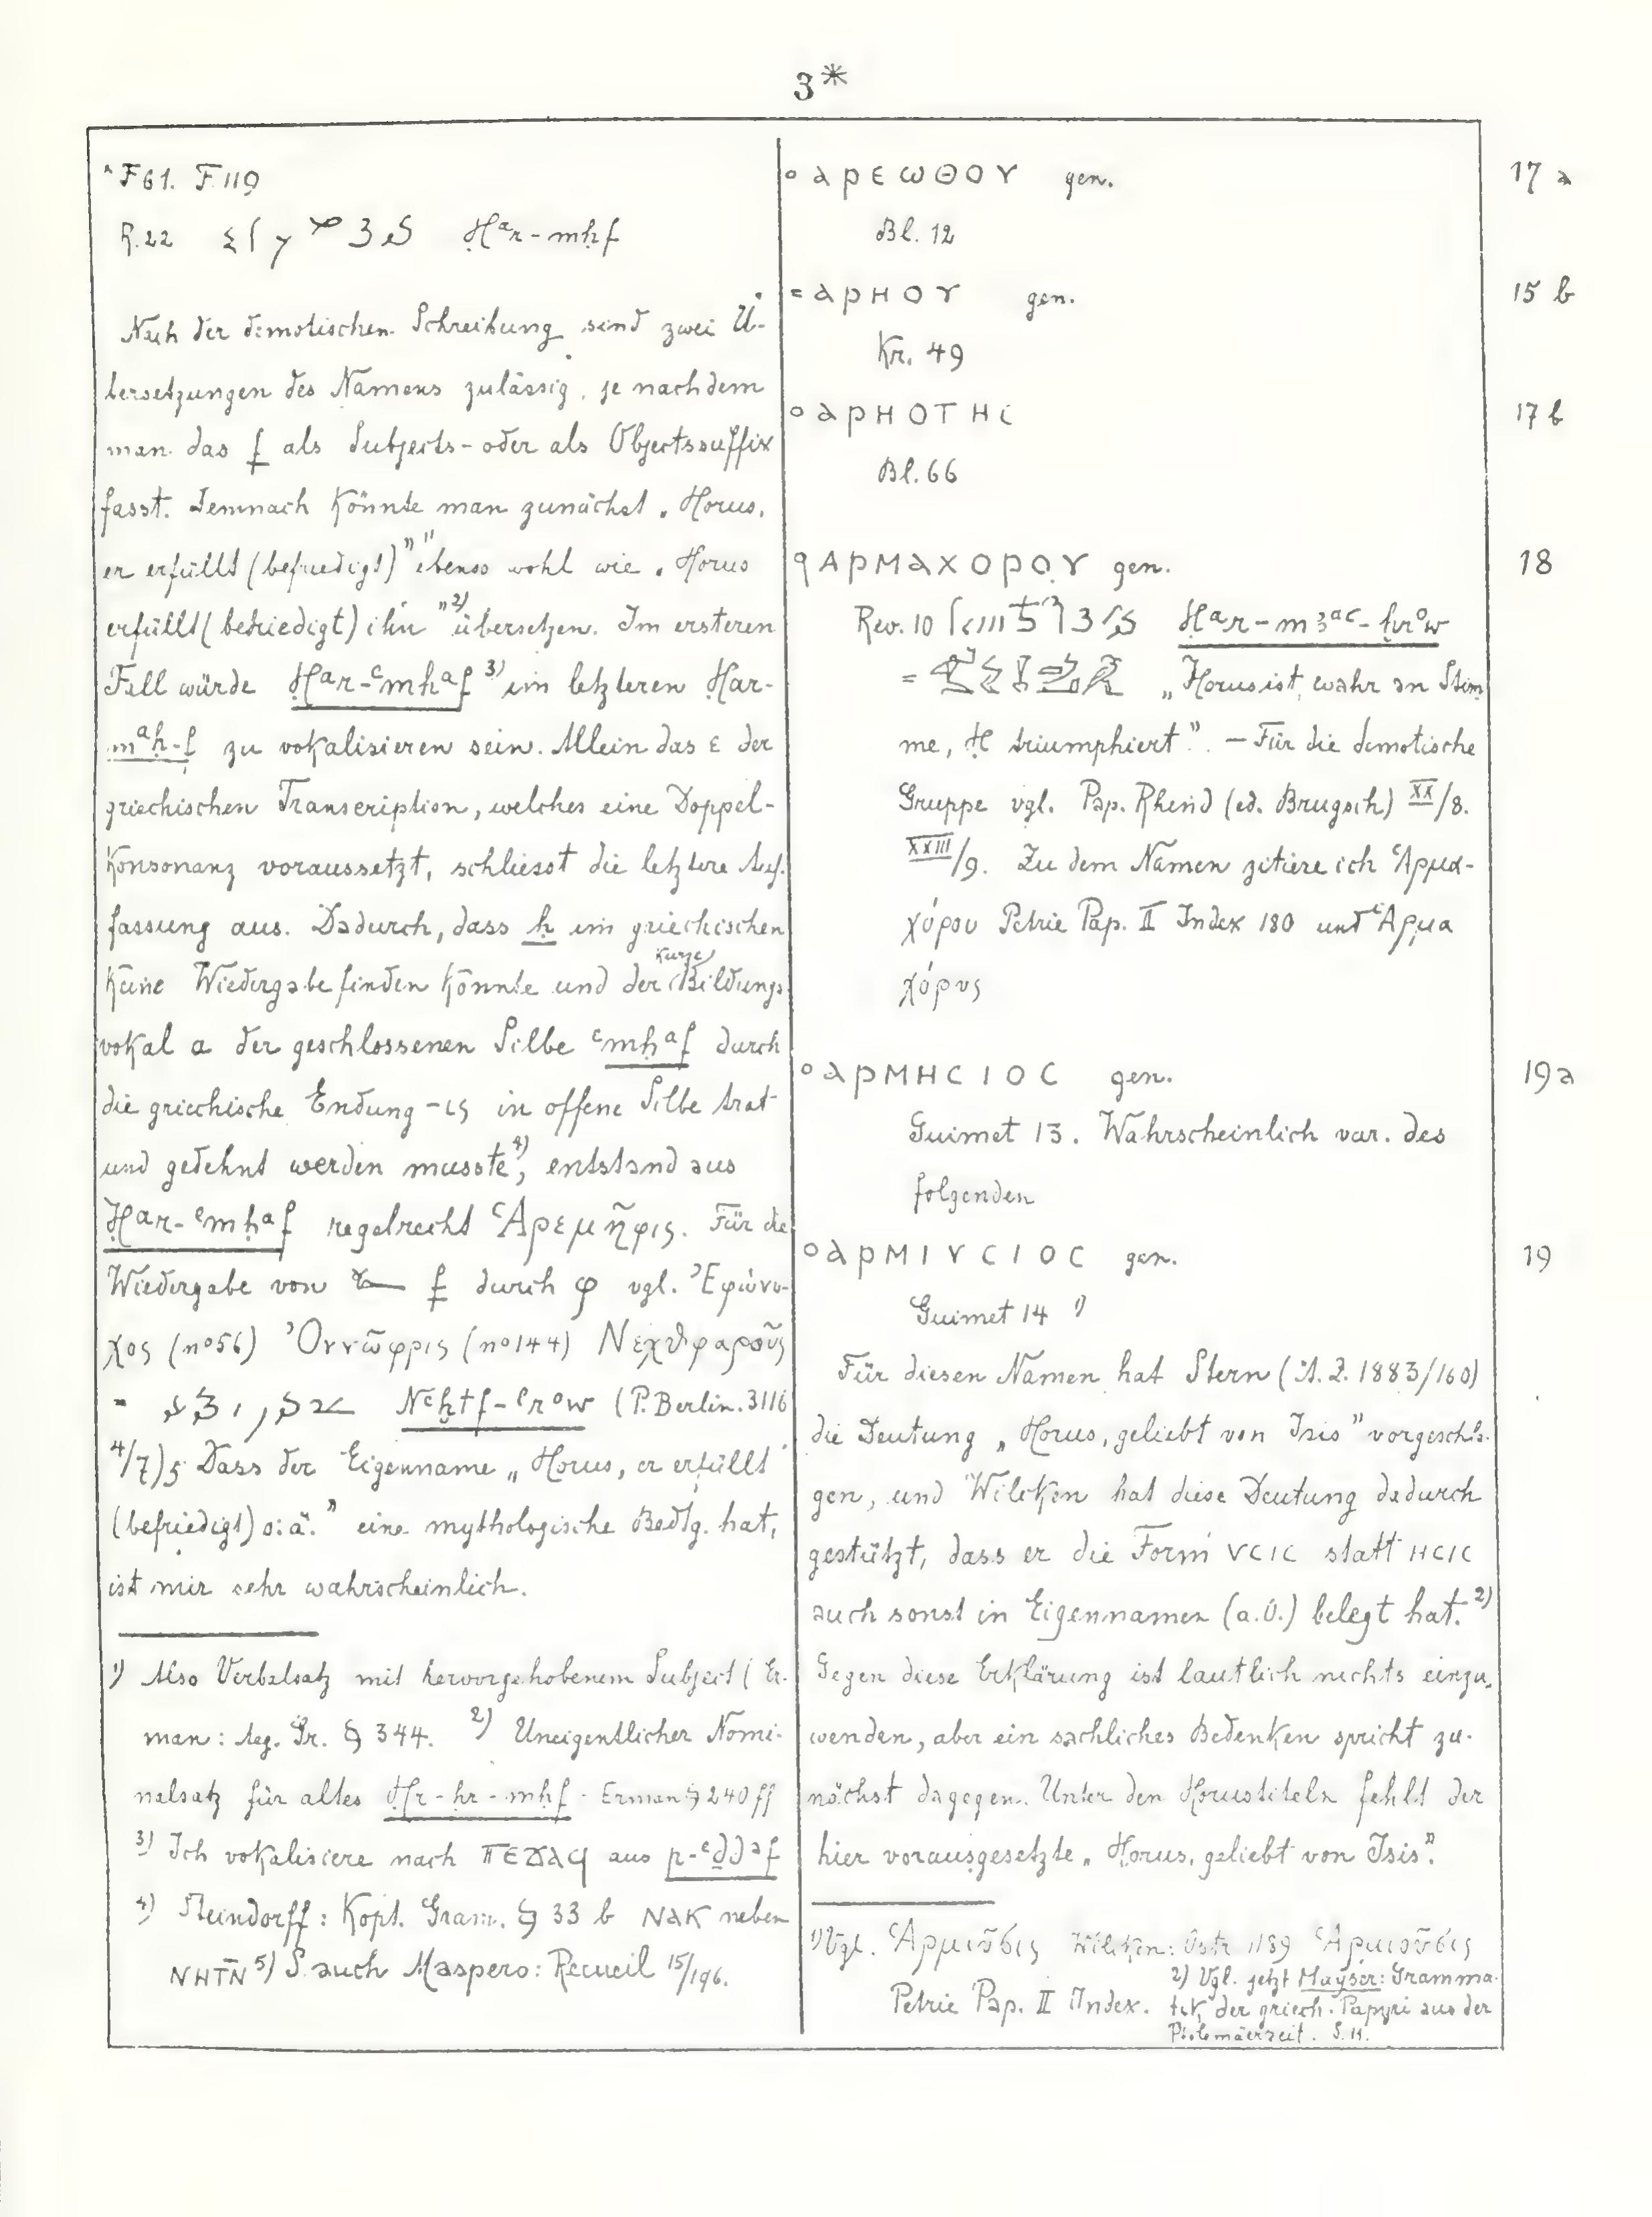 3*
F61. F.119
R.22 Ḥᵃr-mḥf
Nach der demotischen Schreibung sind zwei Ü-
bersetzungen des Namens zulässig, je nachdem
man das f als Subjects- oder als Objectssuffix
fasst. Demnach könnte man zunächst „Horus,
er erfüllt (befriedigt)" ¹⁾ ebenso wohl wie „Horus
erfüllt (befriedigt) ihn" ²⁾ übersetzen. Im ersteren
Fall würde Ḥᵃr-ᵉmḥᵃf ³⁾ im letzteren Ḥar-
mᵃḥ-f zu vokalisieren sein. Allein das ε der
griechischen Transcription, welches eine Doppel-
konsonanz voraussetzt, schliesst die letztere Auf-
fassung aus. Dadurch, dass ḥ im griechischen
keine Wiedergabe finden konnte und der kurze Bildungs-
vokal a der geschlossenen Silbe ᵉmḥᵃf durch
die griechische Endung -ις in offene Silbe trat
und gedehnt werden musste ⁴⁾, entstand aus
Ḥar-ᵉmḥᵃf regelrecht Ἁρεμῆφις. Für die
Wiedergabe von f durch φ vgl. Ἐφώνυ-
χος (nº56) Ὀννῶφρις (nº144) Νεχθφαροῦς
= Nᵉḫtf-ᵉrºw (P. Berlin. 3116
4/7) 5 Dass der Eigenname „Horus, er erfüllt
(befriedigt) o. ä." eine mythologische Bedtg. hat,
ist mir sehr wahrscheinlich.
¹⁾ Also Verbalsatz mit hervorgehobenem Subject (Er-
man: Aeg. Gr. § 344. ²⁾ Uneigentlicher Nomi-
nalsatz für altes Ḥr-ḥr-mḥf. Erman § 240 ff
³⁾ Ich vokalisiere nach ⲡⲉϫⲁϥ aus p-ᵉḏdᵃf
⁴⁾ Steindorff: Kopt. Gram. § 33 b ⲛⲁⲕ neben
ⲛⲏⲧⲛ̄ ⁵⁾ S. auch Maspero: Recueil 15/196.
º ⲁⲣⲉⲱⲑⲟⲩ gen. 17 a
Bl. 12
= ⲁⲣⲏⲟⲩ gen. 15 b
Kr. 49
º ⲁⲣⲏⲟⲧⲏⲥ 17 b
Bl. 66
ⲁⲣⲙⲁⲭⲟⲣⲟⲩ gen. 18
Rev. 10 Ḥᵃr-mꜣᵃᶜ-ḫrºw
= „Horus ist wahr an Stim
me, H triumphiert". — Für die demotische
Gruppe vgl. Pap. Rhind (ed. Brugsch) XX/8.
XXIII/9. Zu dem Namen zitiere ich Ἁρμα-
χόρου Petrie Pap. II Index 180 und Ἁρμα
χόρυς
º ⲁⲣⲙⲏⲥⲓⲟⲥ gen. 19a
Guimet 13. Wahrscheinlich var. des
folgenden
º ⲁⲣⲙⲓⲩⲥⲓⲟⲥ gen. 19
Guimet 14 ¹⁾
Für diesen Namen hat Stern (Ä. Z. 1883/160)
die Deutung „Horus, geliebt von Isis" vorgeschla-
gen, und Wilcken hat diese Deutung dadurch
gestützt, dass er die Form ⲩⲥⲓⲥ statt ⲏⲥⲓⲥ
auch sonst in Eigennamen (a.O.) belegt hat. ²⁾
Gegen diese Erklärung ist lautlich nichts einzu-
wenden, aber ein sachliches Bedenken spricht zu-
nächst dagegen. Unter den Horustiteln fehlt der
hier vorausgesetzte „Horus, geliebt von Isis".
¹⁾ Vgl. Ἁρμιῦσις Wilcken: Ostr. 1189 Ἁρμιοῦσις
Petrie Pap. II Index. 2) Vgl. jetzt Mayser: Gramma-
tik der griech. Papyri aus der
Ptolemäerzeit.